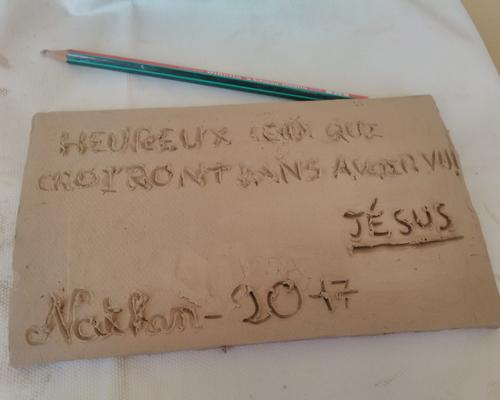 HEUREUX CEUX QUI
CROIRONT SANS AVOIR VU!
JÉSUS
Nathan-2017